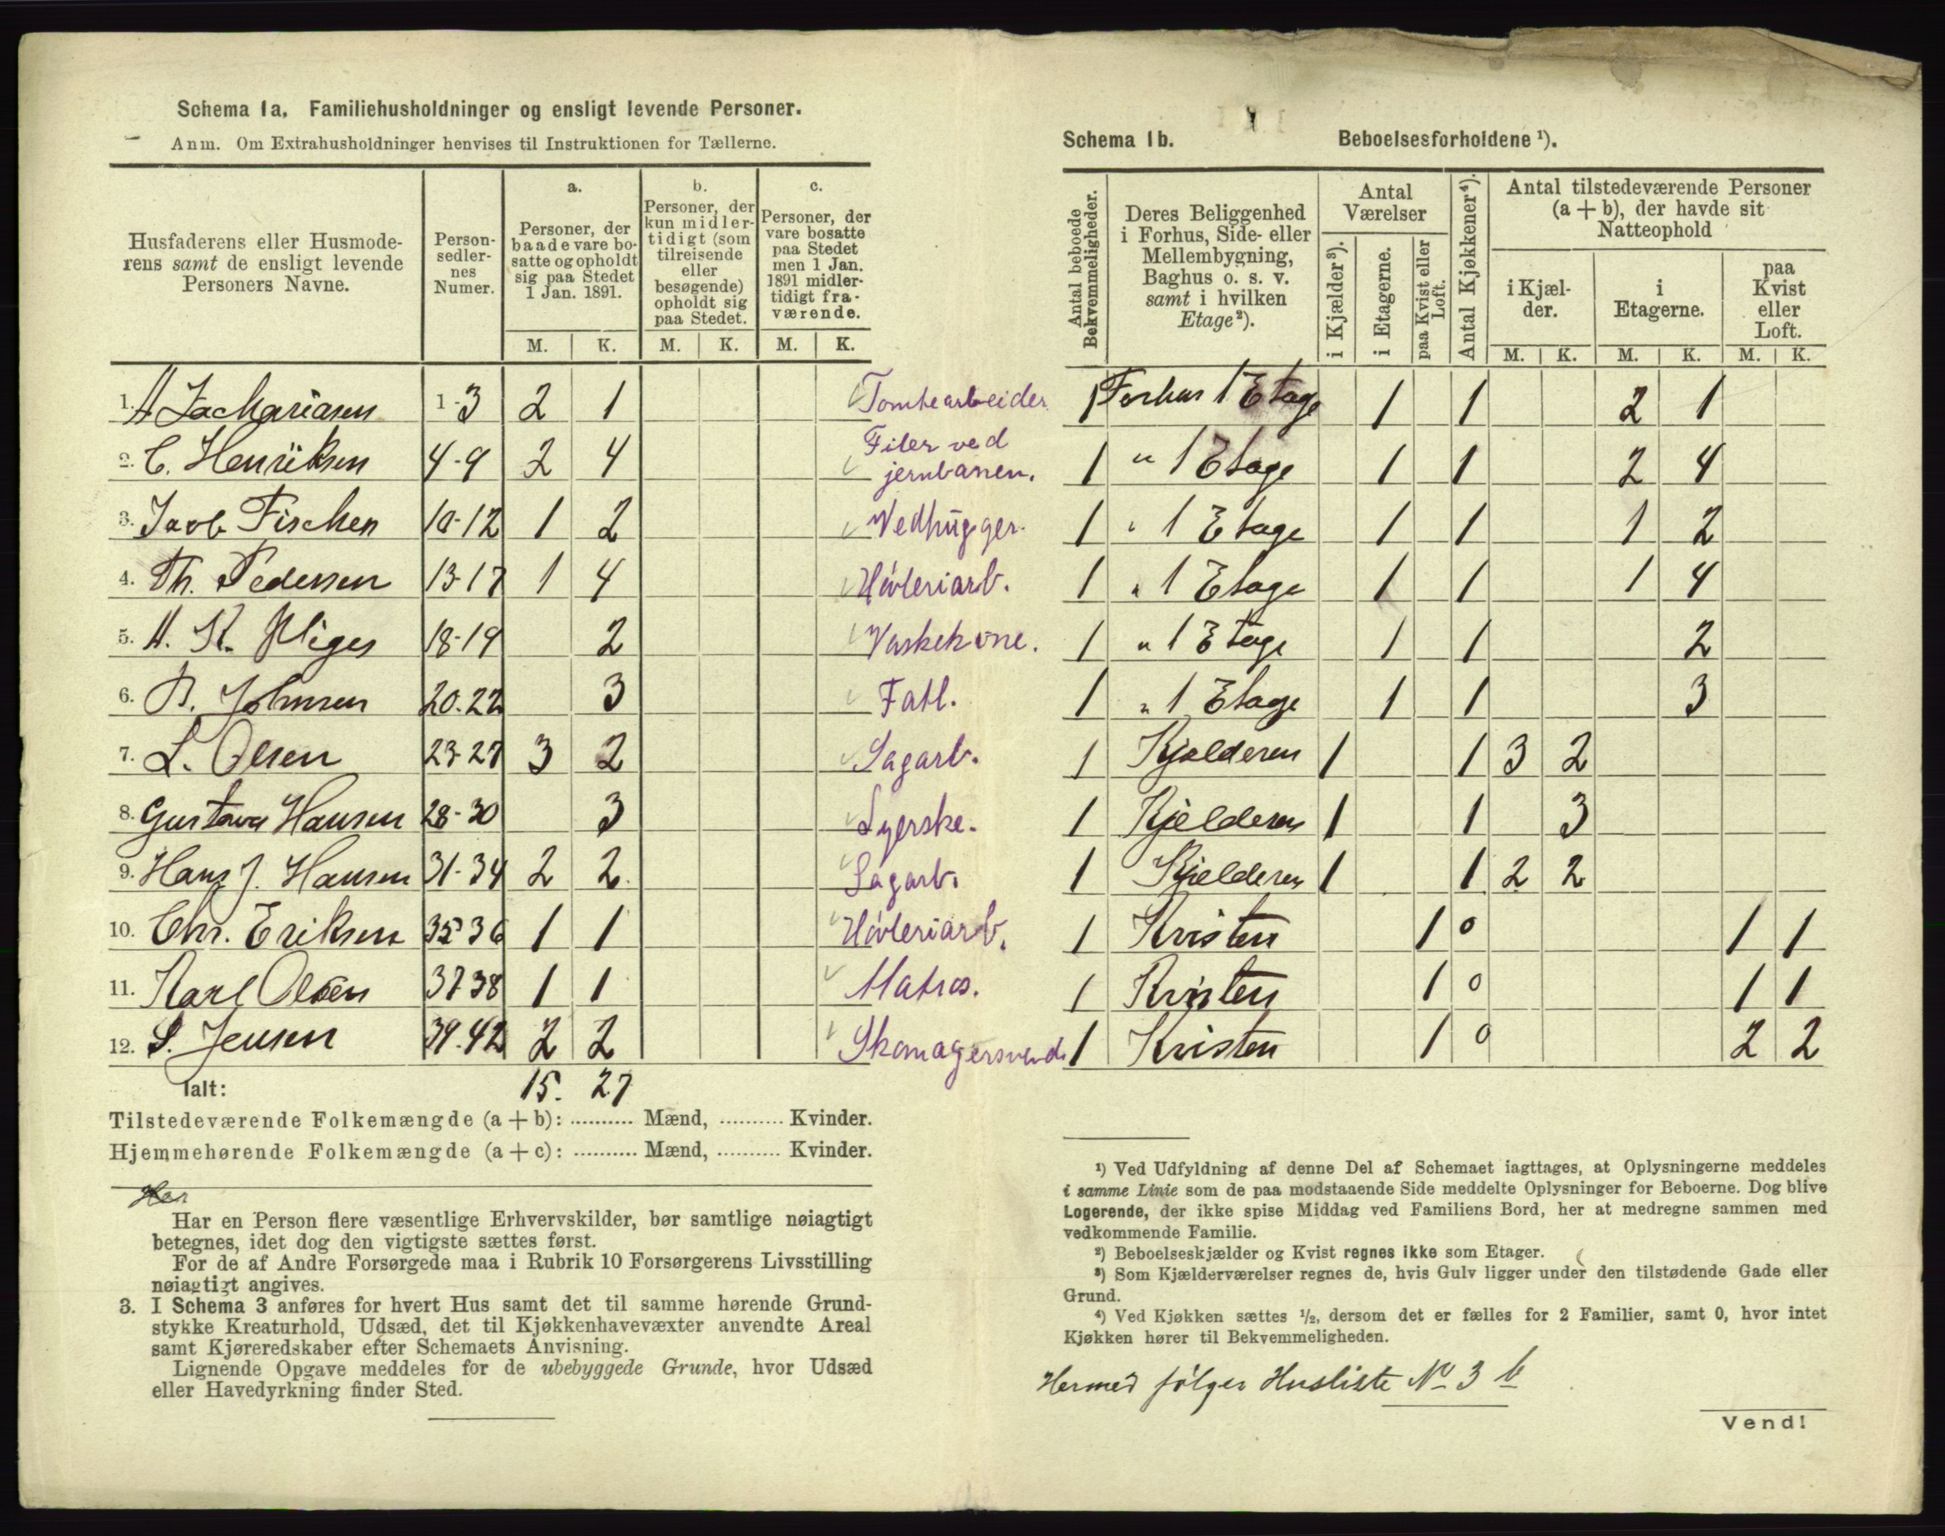 Schema 1a. Familiehusholdninger og ensligt levende Personer.
Anm. Om Extrahusholdninger henvises til Instruktionen for Tællerne.
Husfaderens eller Husmoderens samt de ensligt levende Personers Navne.
Personsedlernes Numer.
a. Personer, der baade vare bosatte og opholdt sig paa Stedet 1 Jan. 1891.
b. Personer, der kun midlertidigt (som tilreisende eller besøgende) opholdt sig paa Stedet.
c. Personer, der vare bosatte paa Stedet men 1 Jan. 1891 midlertidigt fraværende.
M. K. M. K. M. K.
1. A Zachariasen 1-3 2 1 Tomtearbeider
2. C. Henriksen 4-9 2 4 Filer ved jernbanen.
3. Jacob Fischer 10-12 1 2 Vedhugger.
4. Th. Pedersen 13-17 1 4 Høvleriarb.
5. A. K. 18-19 2 Vaskekone.
6. B. Johnsen 20.22 3 Fatl.
7. L. Olsen 23-27 3 2 Sagarb.
8. Gustava Hansen 28-30 3 Syerske.
9. Hans J. Hansen 31-34 2 2 Sagarb.
10. Chr. Eriksen 35-36 1 1 Høvleriarb.
11. Karl Olsen 37-38 1 1 Matros.
12. S. Jensen 39.42 2 2 Skomagersvend
Ialt: 15. 27
Tilstedeværende Folkemængde (a + b): .......... Mænd, .......... Kvinder.
Hjemmehørende Folkemængde (a + c): .......... Mænd, .......... Kvinder.
Har
Har en Person flere væsentlige Erhvervskilder, bør samtlige nøiagtigt
betegnes, idet dog den vigtigste sættes først.
For de af Andre Forsørgede maa i Rubrik 10 Forsørgerens Livsstilling
nøiagtigt angives.
3. I Schema 3 anføres for hvert Hus samt det til samme hørende Grund-
stykke Kreaturhold, Udsæd, det til Kjøkkenhavevæxter anvendte Areal
samt Kjøreredskaber efter Schemaets Anvisning.
Lignende Opgave meddeles for de ubebyggede Grunde, hvor Udsæd
eller Havedyrkning finder Sted.
Schema 1b. Beboelsesforholdene ¹).
Antal beboede Bekvemmeligheder.
Deres Beliggenhed i Forhus, Side- eller Mellembygning, Baghus o. s. v. samt i hvilken Etage ²).
Antal Værelser
i Kjælder ³).
i Etagerne.
paa Kvist eller Loft.
Antal Kjøkkener ⁴).
Antal tilstedeværende Personer (a + b), der havde sit Natteophold
i Kjælder.
i Etagerne.
paa Kvist eller Loft.
M. K. M. K. M. K.
1 Forhus 1 Etage 1 1 2 1
1 " 1 Etage 1 1 2 4
1 " 1 Etage 1 1 1 2
1 " 1 Etage 1 1 1 4
1 " 1 Etage 1 1 2
1 " 1 Etage 1 1 3
1 Kjelderen 1 1 3 2
1 Kjelderen 1 1 3
1 Kjelderen 1 1 2 2
1 Kvisten 1 0 1 1
1 Kvisten 1 0 1 1
1 Kvisten 1 0 2 2
¹) Ved Udfyldning af denne Del af Schemaet iagttages, at Oplysningerne meddeles
i samme Linie som de paa modstaaende Side meddelte Oplysninger for Beboerne. Dog blive
Logerende, der ikke spise Middag ved Familiens Bord, her at medregne sammen med
vedkommende Familie.
²) Beboelseskjælder og Kvist regnes ikke som Etager.
³) Som Kjælderværelser regnes de, hvis Gulv ligger under den tilstødende Gade eller
Grund.
⁴) Ved Kjøkken sættes ½, dersom det er fælles for 2 Familier, samt 0, hvor intet
Kjøkken hører til Bekvemmeligheden.
Hermed følger Husliste No 3 b
Vend!